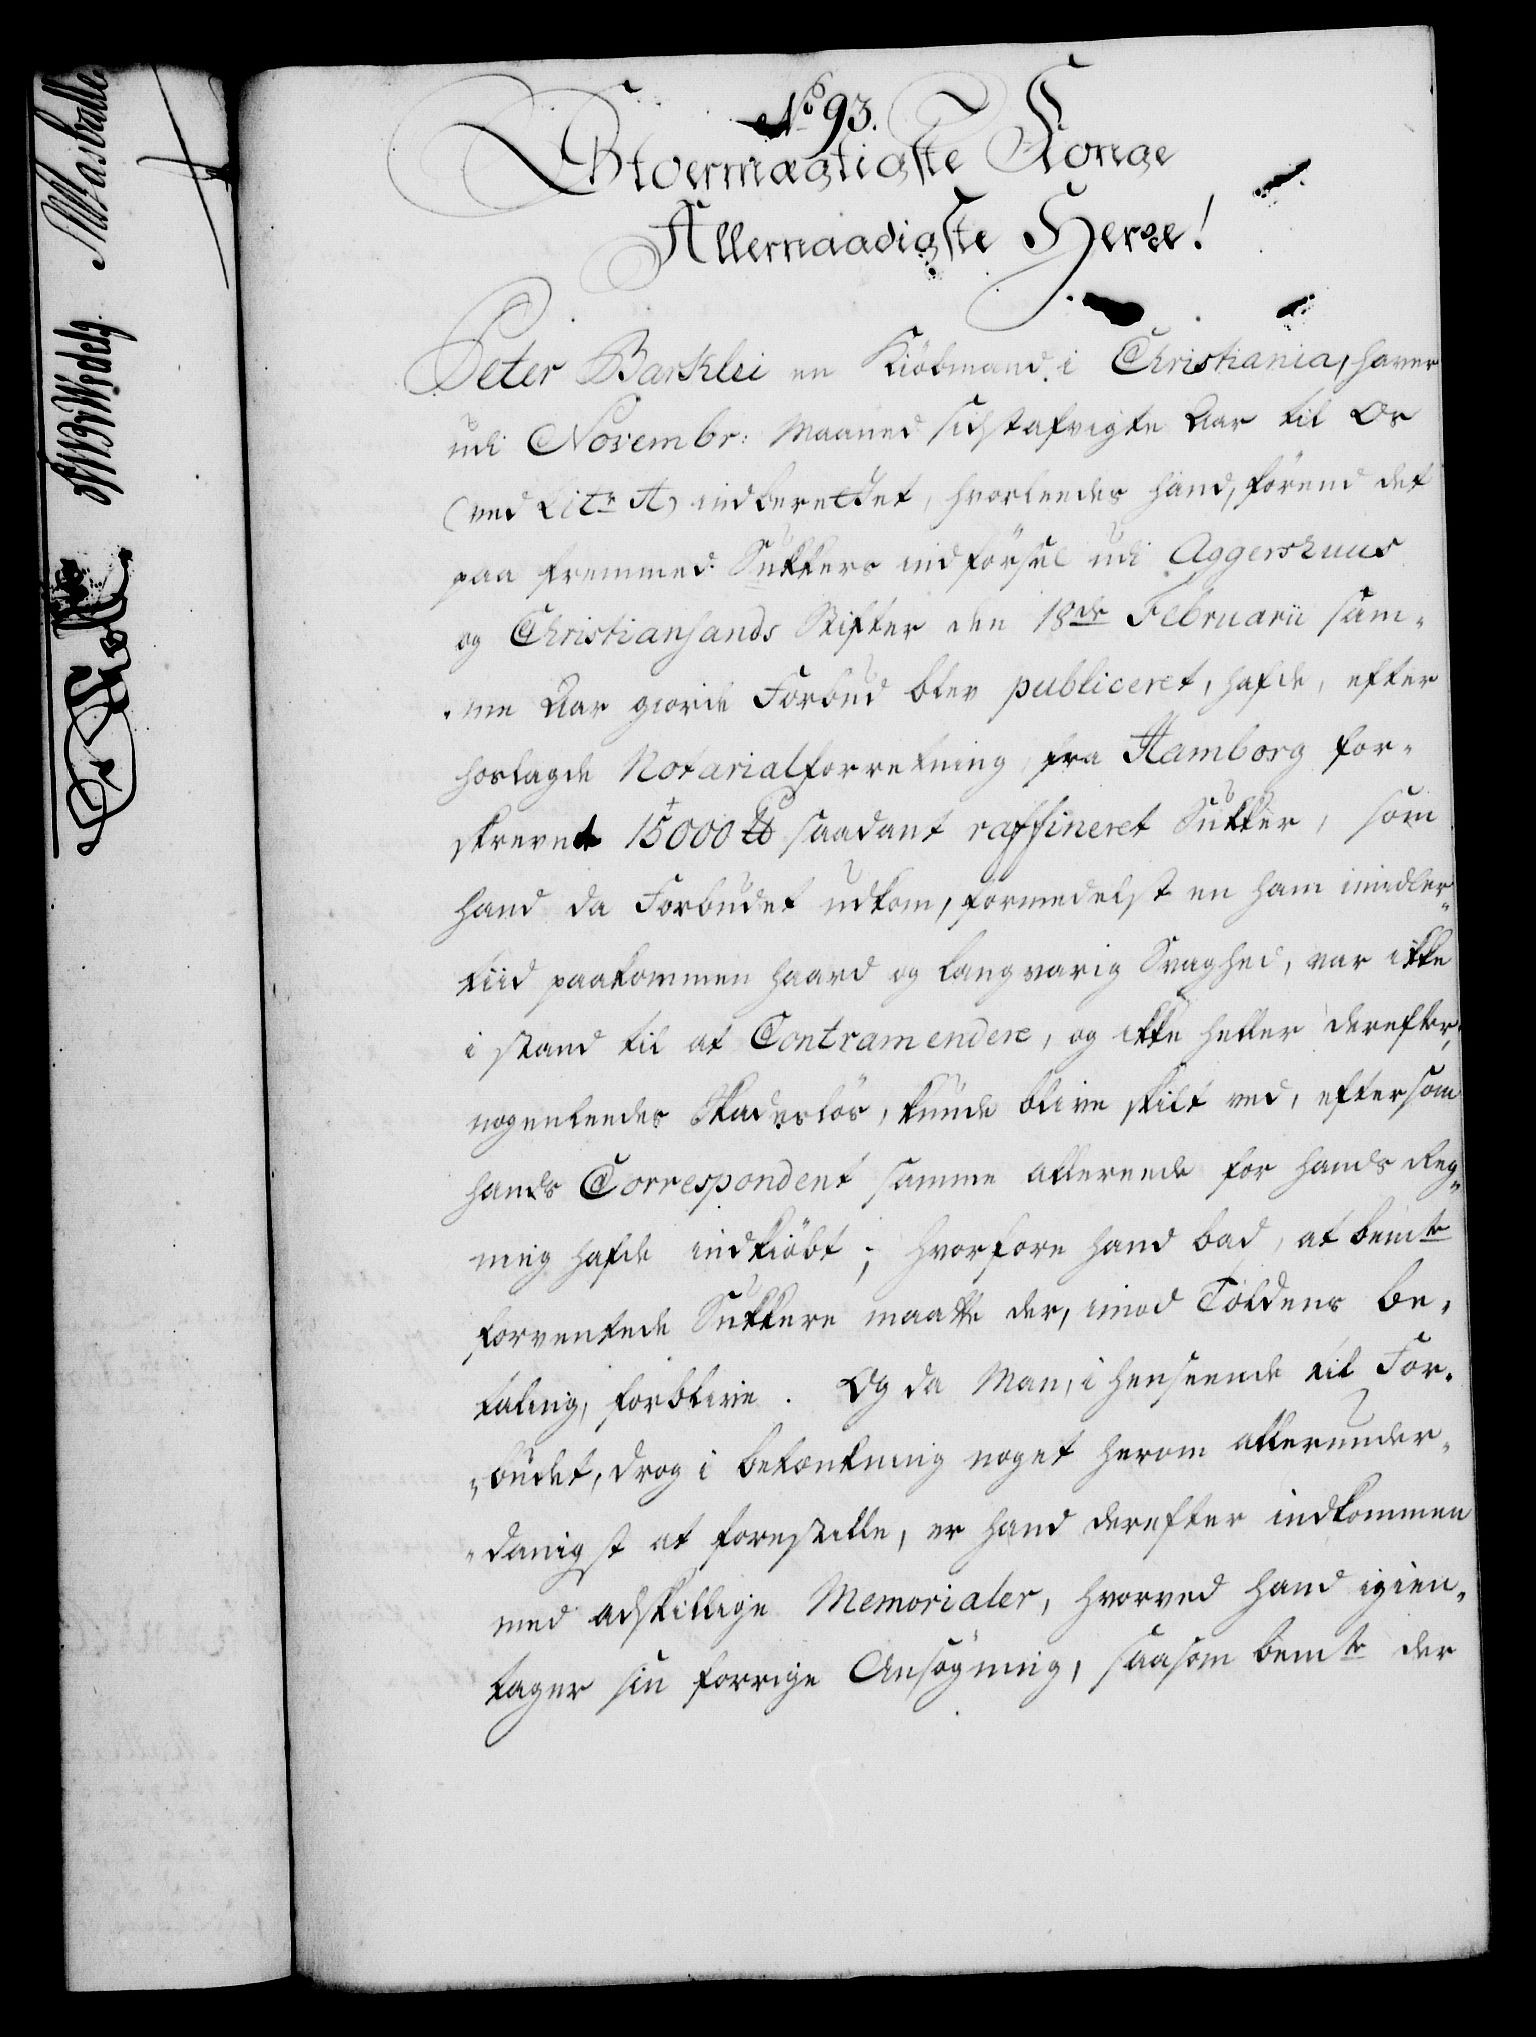 No 93.
Stoermægtigste Konge
Allernaadigste Herre!
Peter Barklei en Kiöbmand i Christiania, haver
udi Novembr: Maaned sidstafvigte Aar til Os
(ved Litr A) indberettet, hvorleedes hand, förend det
paa fremmed Sukkers indförsel udi Aggershuus
og Christiansands Stifter den 18de Februarii sam-
me Aar giorde Forbud blev publiceret, hafde, efter
hoslagde Notarialforretning fra Hamborg for-
skrevet 15000 ℔ saadant raffineret Sukker, som
hand da Forbudet udkom, formedelst en ham imidler-
tiid paakommen haard og langvarig Svaghed, var ikke
i stand til at Contramendere, og ikke heller derefter,
nogenleedes Skadeslös, kunde blive skilt ved, eftersom
hands Correspondent samme allereede for hands Reg-
ning hafde indkiöbt; hvorfore hand bad, at bemte
forventede Sukkere maatte der, imod Toldens be-
taling, forblive. Og da Man, i henseende til For-
budet, drog i betænkning noget herom allerunder-
danigst at forestille, er hand derefter indkommen
med adskillige Memorialer, hvorved hand igien-
tager sin forrige Ansögning, saasom bemte der